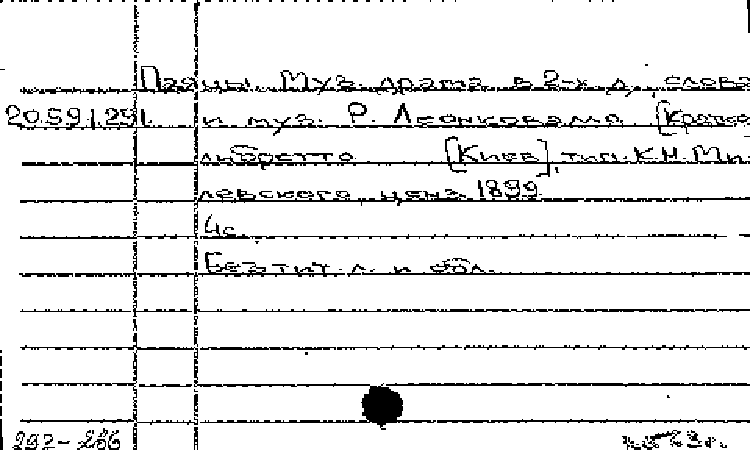 Паяцы. Муз. драма в 2-х д., слова
20.59.1.251. и муз. Р. Леонковалло [Кратко
либретто [Киев], тип. К.Н. Ми-
левского, ценз. 1899.
4с.
Без тит. л. и обл.
292-286